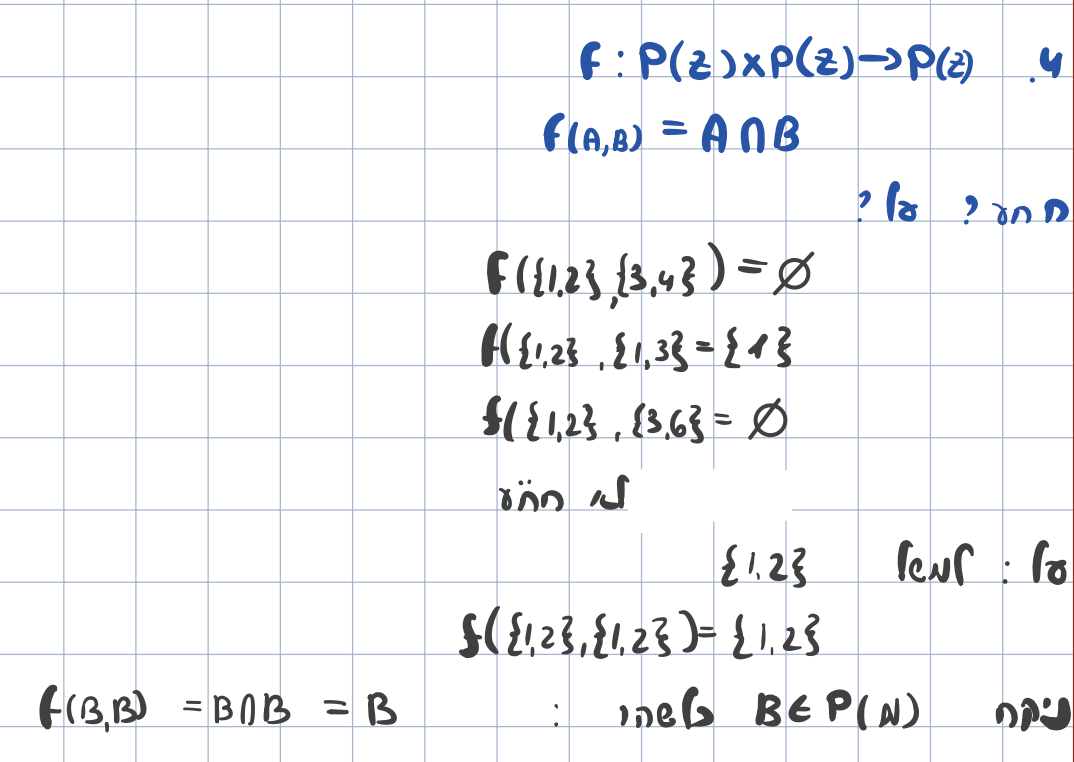 4. F : P(z) × P(z) → P(z)
f(A,B) = A ∩ B
חחע ? על ?
F({1,2},{3,4}) = ∅
f({1,2} , {1,3} = {1}
f({1,2} , {3,6} = ∅
לא חח"ע
על : למשל {1,2}
f({1,2},{1,2}) = {1,2}
ניקח B ∈ P(N) כלשהו : f(B,B) = B∩B = B